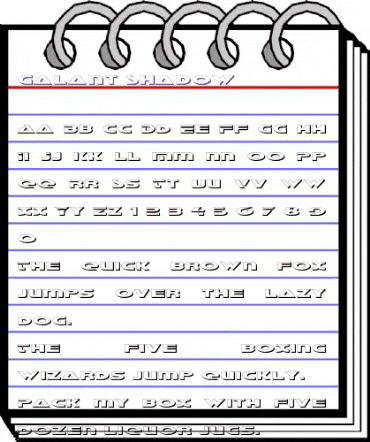 GALANT SHADOW
AA BB CC DD EE FF GG HH
II JJ KK LL MM NN OO PP
QQ RR SS TT UU VV WW
XX YY ZZ 1 2 3 4 5 6 7 8 9
0
THE QUICK BROWN FOX
JUMPS OVER THE LAZY
DOG.
THE FIVE BOXING
WIZARDS JUMP QUICKLY.
PACK MY BOX WITH FIVE
DOZEN LIQUOR JUGS.